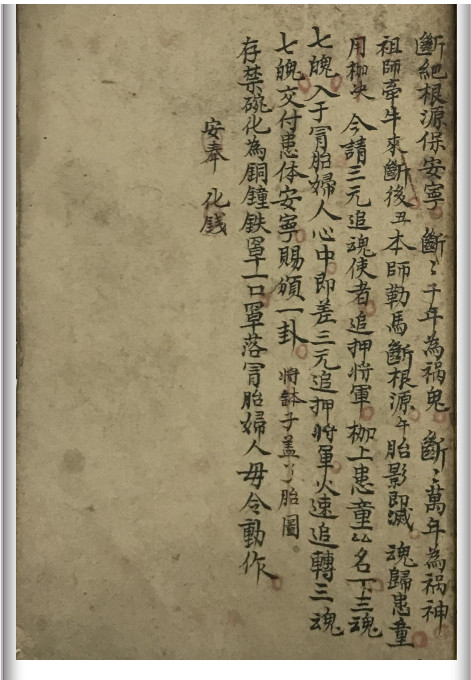 斷絕根源保安寧 斷〻千年為祸鬼 斷〻萬年為祸神
祖師牵牛來斷後丑 本師勒馬斷根源午 胎影即滅 魂歸患童
用枷决 今請三元追魂使者追押将軍 枷上患童厶名下三魂
七魄入于冐胎婦人心中即差三元追押将軍火速追轉三魂
七魄交付患体安寧賜頒一卦 将缽子盖了胎圖
存禁碗化為銅鐘鉄罩一口罩落冐胎婦人毋令動作
安奉 化銭